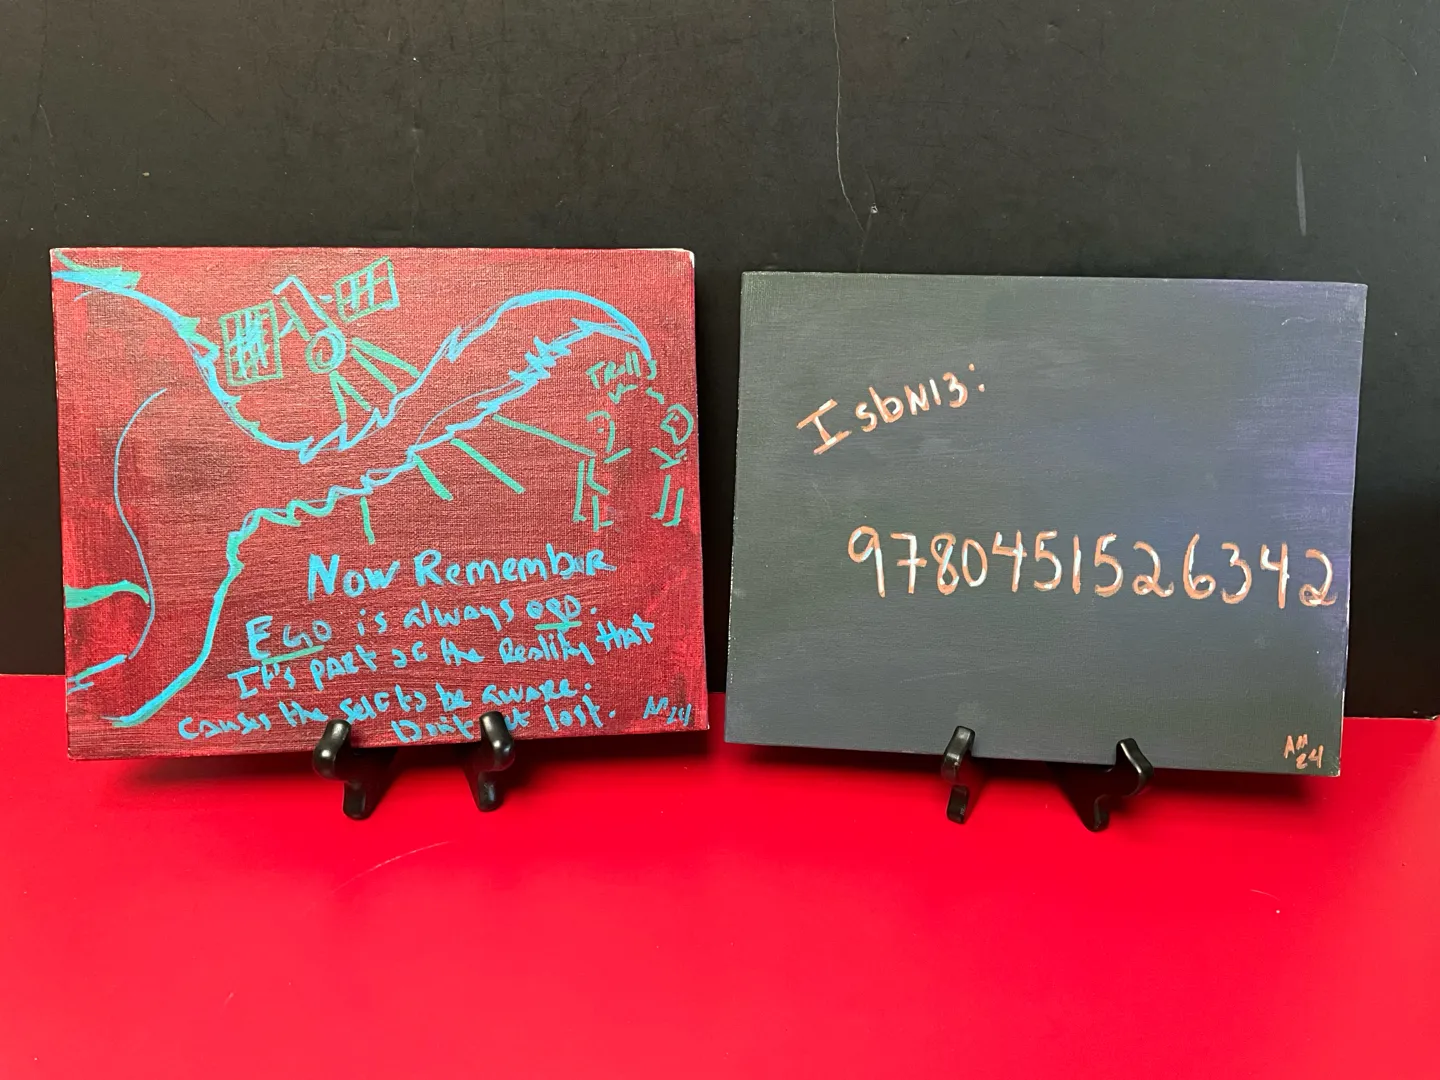 Trolls
Now Remember
EGO is always odd.
It's part of the Reality that
causes the self to be aware.
Don't get lost.
AM24
IsbN13:
9780451526342
AM
24